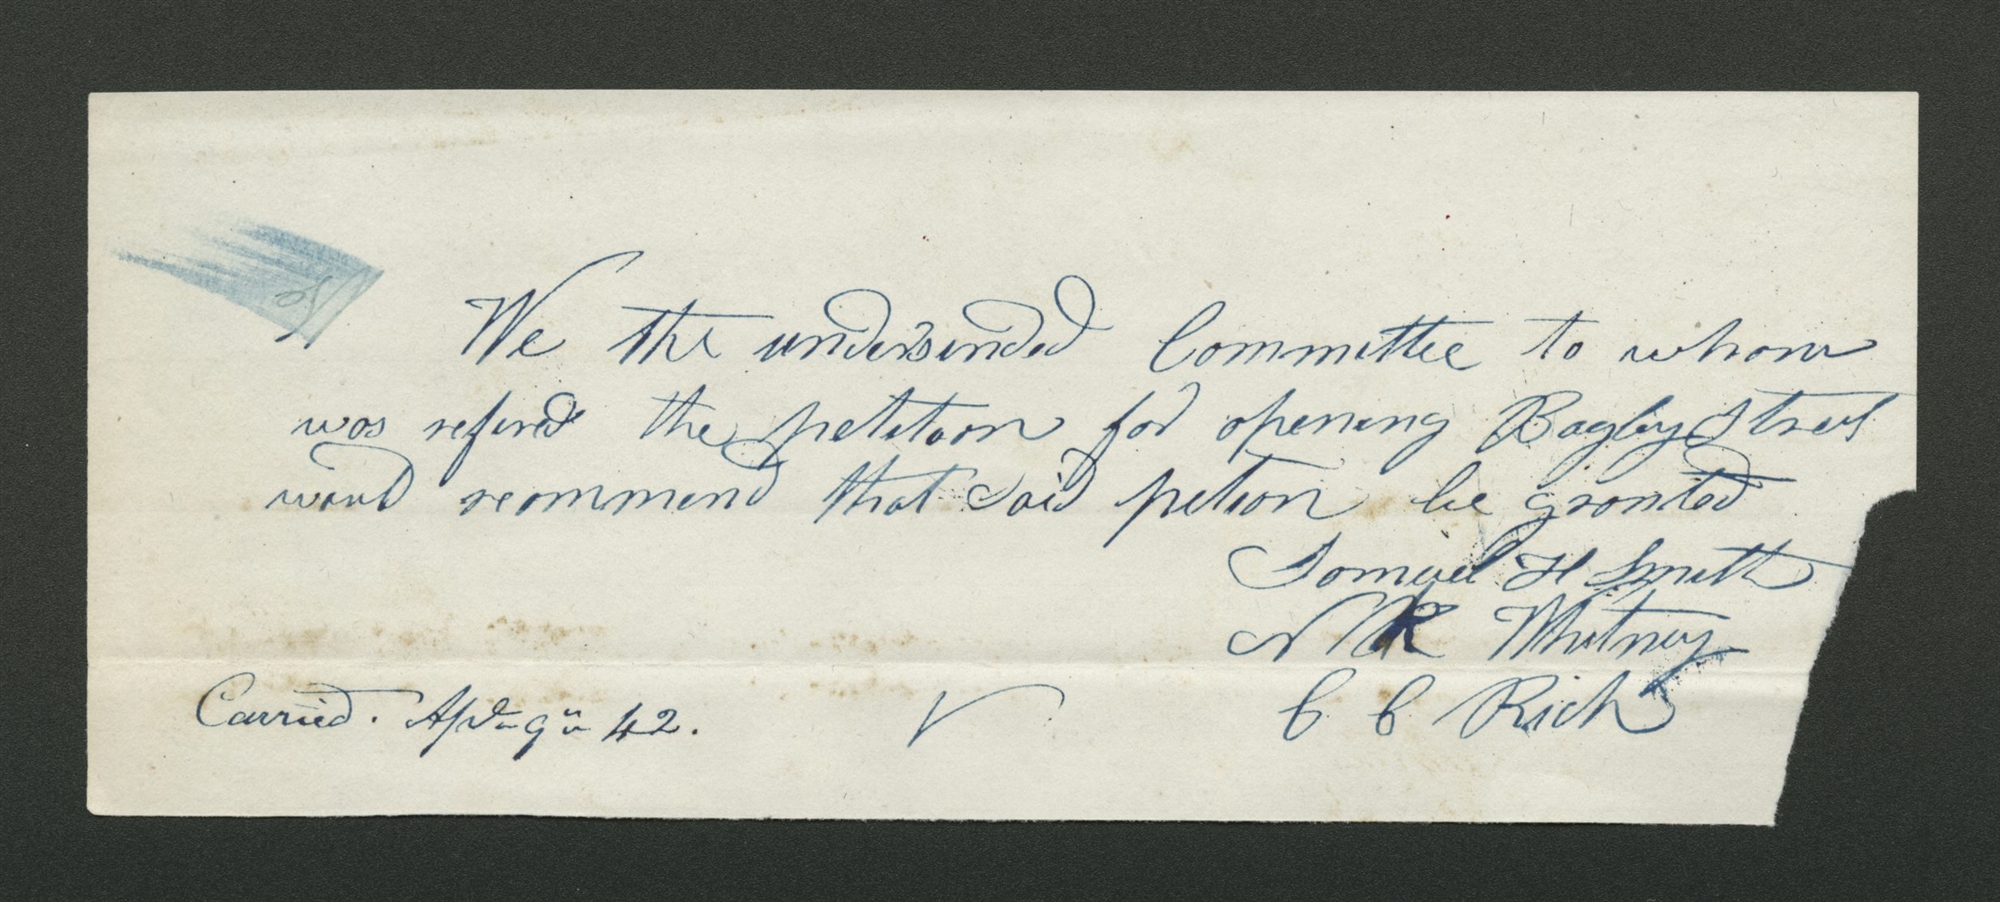 We the undersended Committee to whom
was refered the petition for opening Bagby Street
would recommend that said petion be granted
Samuel H Smith
N K Whitney
C C Rich
Carried. Apl 9th 42.